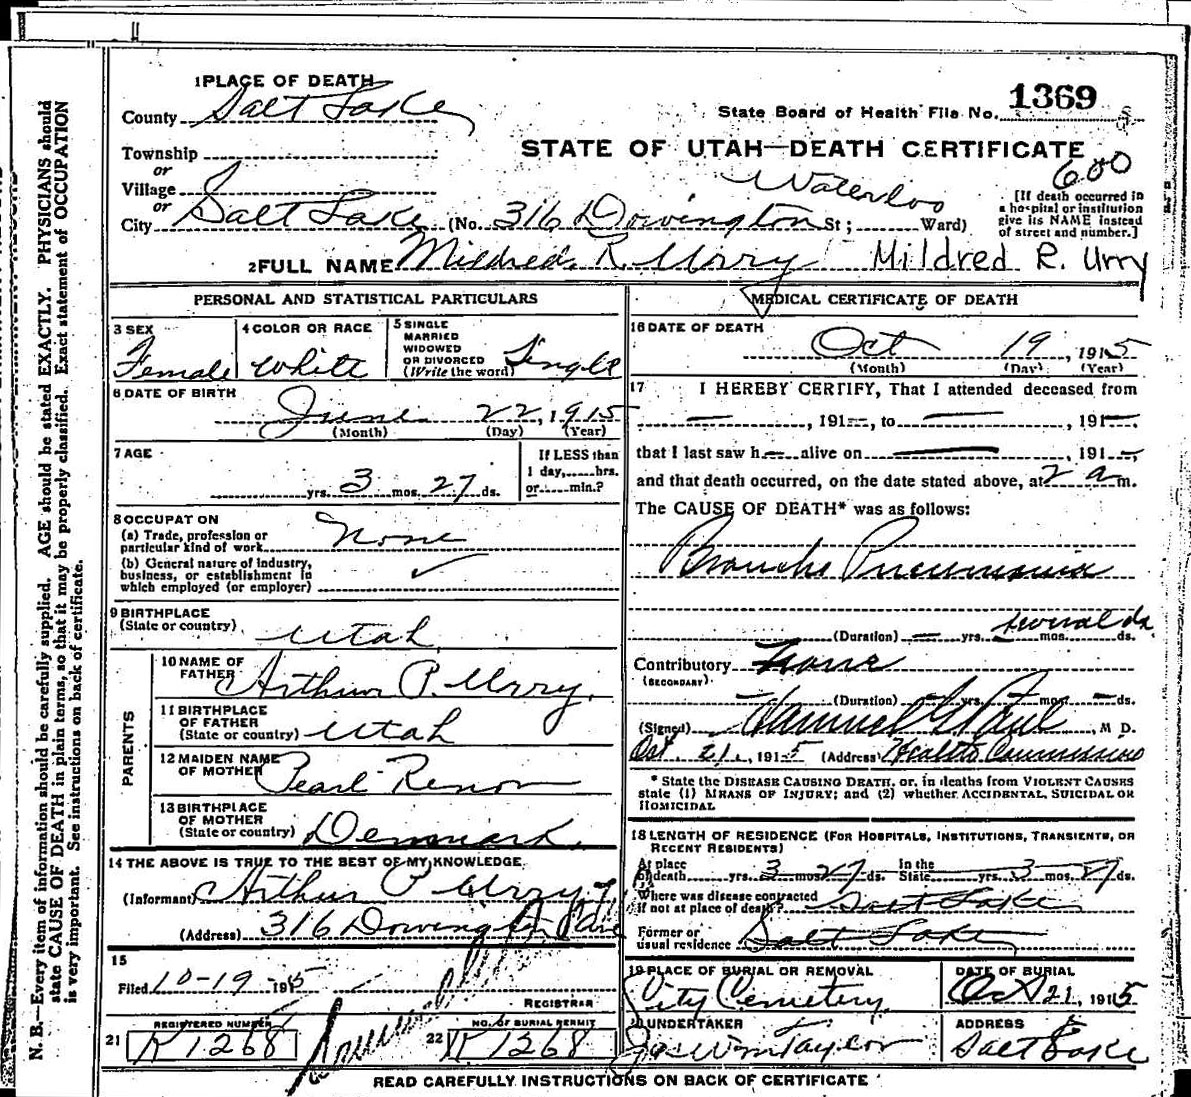 1 PLACE OF DEATH
County Salt Lake
State Board of Health File No. 1369
Township
or
Village
or
STATE OF UTAH—DEATH CERTIFICATE
600
Waterloo
City Salt Lake (No. 316 Downington St; Ward)
[If death occurred in a hospital or institution give its NAME instead of street and number.]
2 FULL NAME Mildred R. Urry Mildred R. Urry
PERSONAL AND STATISTICAL PARTICULARS
3 SEX Female
4 COLOR OR RACE White
5 SINGLE MARRIED WIDOWED OR DIVORCED (Write the word) Single
6 DATE OF BIRTH June 22, 1915
(Month) (Day) (Year)
7 AGE yrs. 3 mos. 27 ds.
If LESS than 1 day, hrs. or min.?
8 OCCUPAT ON
(a) Trade, profession or particular kind of work None
(b) General nature of industry, business, or establishment in which employed (or employer)
9 BIRTHPLACE (State or country) Utah
PARENTS
10 NAME OF FATHER Arthur P. Urry.
11 BIRTHPLACE OF FATHER (State or country) Utah
12 MAIDEN NAME OF MOTHER Pearl
13 BIRTHPLACE OF MOTHER (State or country) Denmark.
14 THE ABOVE IS TRUE TO THE BEST OF MY KNOWLEDGE.
(Informant) Arthur P Urry
(Address) 316 Downington Ave
15 Filed 10-19 1915
REGISTRAR
21 REGISTERED NUMBER K 1268
22 NO. OF BURIAL PERMIT K 1268
MEDICAL CERTIFICATE OF DEATH
16 DATE OF DEATH
Oct 19, 1915
(Month) (Day) (Year)
17 I HEREBY CERTIFY, That I attended deceased from
—, 191—, to —, 191—,
that I last saw h— alive on —, 191—,
and that death occurred, on the date stated above, at 2 a m.
The CAUSE OF DEATH* was as follows:
Broncho Pneumonia
(Duration) — yrs. several mos. ds.
Contributory None
(SECONDARY)
(Duration) — yrs. — mos. — ds.
(Signed) Samuel G Paul, M D.
Oct. 21, 1915 (Address) Health Commissioner
* State the DISEASE CAUSING DEATH, or, in deaths from VIOLENT CAUSES
state (1) MEANS OF INJURY; and (2) whether ACCIDENTAL, SUICIDAL OR
HOMICIDAL
18 LENGTH OF RESIDENCE (FOR HOSPITALS, INSTITUTIONS, TRANSIENTS, OR
RECENT RESIDENTS)
At place of death yrs. 3 mos. 27 ds. In the State yrs. 3 mos. 27 ds.
Where was disease contracted if not at place of death? Salt Lake
Former or usual residence Salt Lake
19 PLACE OF BURIAL OR REMOVAL City Cemetery
DATE OF BURIAL Oct 21, 1915
20 UNDERTAKER Jos Wm Taylor
ADDRESS Salt Lake
READ CAREFULLY INSTRUCTIONS ON BACK OF CERTIFICATE
N. B.—Every item of information should be carefully supplied. AGE should be stated EXACTLY. PHYSICIANS should
state CAUSE OF DEATH in plain terms, so that it may be properly classified. Exact statement of OCCUPATION
is very important. See instructions on back of certificate.